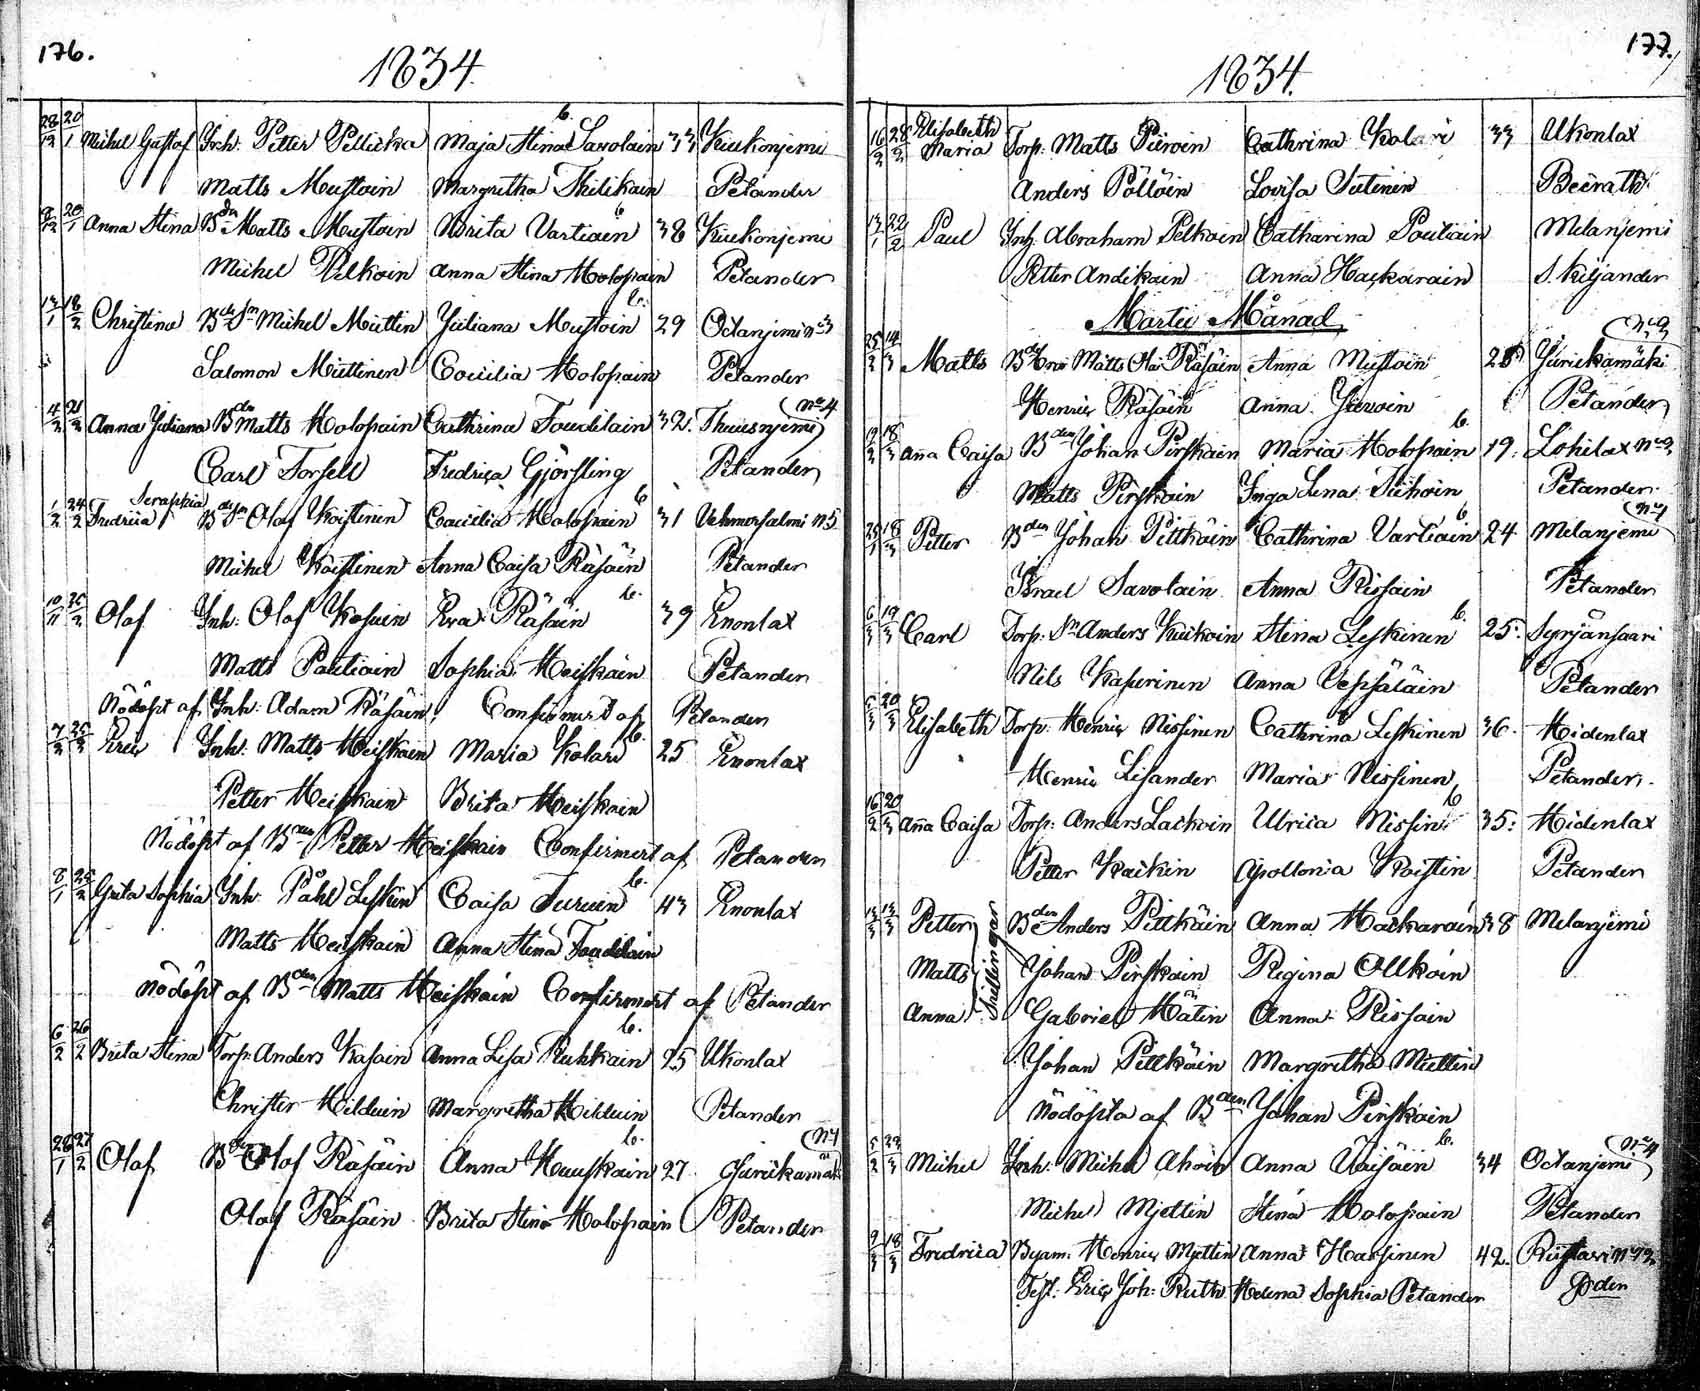 176.
1834.
28/12 20/1 Michel Gustaf Inh: Petter Pellicka Maja Stina Savolain 33 Kiukonjemi
Matts Mustoin Margretha Thilikain Petander
9/12 20/1 Anna Stina Bdn Matts Mustoin Brita Vartiain 38 Kiukonjemi
Michel Pelkoin Anna Stina Holopain Petander
13/1 18/2 Christina Bde Sn Michel Miettin Juliana Mustoin 29 Octanjemi No 3
Salomon Miettinen Coecilia Holopain Petander
4/2 21/2 Anna Juliana Bdn Matts Holopain Cathrina Toudilain 32. Thuusnjemi No 4
Carl Forsell Fredrica Gjörsling Petander
1/2 24/2 Fredrica Seraphia Bde Sn Olof Koistinen Caecilia Holopain 31 Vehmersalmi N 5
Michel Koistinen Anna Caisa Räsäin Petander
10/11 25/2 Olof Inh: Olof Kosuin Eva Räsäin 39 Enonlax
Matts Pautiain Sophia Heiskain Petander
Nödöpt af Inh: Adam Räsäin, Confirmert af Petander
7/2 25/2 Eric Inh: Matts Heiskain Maria Kolari 25 Enonlax
Petter Heiskain Brita Heiskain
Nödöpt af Bden Petter Heiskain Confirmert af Petander
8/1 25/2 Greta Sophia Inh: Påhl Leskin Caisa Turuin 43 Enonlax
Matts Heiskain Anna Stina Toudilain
nödöpt af Bden Matts Heiskain Confirmert af Petander
6/2 26/2 Brita Stina Torp: Anders Kasain Anna Lisa Ruhkain 25 Ukonlax
Christer Hilduin Margretha Hilduin Petander
28/1 27/2 Olof Bden Olof Räsäin Anna Huuskain 27 Jurickamäki N 1
Olof Räsäin Brita Stina Holopain Petander
177.
1834.
16/2 28/2 Elisabeth Maria Torp: Matts Piiroin Cathrina Kolari 33 Ukonlax
Anders Pöllöin Lovisa Sutinen Becrath
13/1 22/2 Paul Inh: Abraham Pelkoin Catharina Poutiain Melanjemi
Petter Andikain Anna Hackarain S. Kiljander
Martii Månad
25/2 14/3 Matts Matts Räsäin Anna Mustoin 28 Jurickamäki No 2
Henric Räsäin Anna Ijevoin Petander
9/2 18/3 Aña Caisa Bden Johan Pirskain Maria Holopain 19: Lohilax No 2
Matts Pirskain Inga Lena Tiihoin Petander
25/2 18/3 Petter Bden Johan Pittkäin Cathrina Vartiain 24 Melanjemi No 1
Israel Savolain Anna Rissain Petander
6/3 19/3 Carl Torp: Sn Anders Kiikoin Stina Leskinen 25: Syrjänsaari
Nils Kasurinen Anna Vepsäläin Petander
6/3 20/3 Elisabeth Torp: Henric Nissinen Cathrina Leskinen 36. Hidenlax
Henric Lisander Maria Nissinen Petander.
16/2 20/3 Aña Caisa Torp: Anders Laihoin Ulrica Nissin: 35: Hidenlax
Petter Kaikin Apollonia Koistin Petander
13/3 13/3 Petter Bden Anders Pittkäin Anna Hackarain 38 Melanjemi
Matts Johan Pirskain Regina Ollkoin
Anna Gabriel Hätin Anna Rissain
Trillingar
Johan Pittkäin Margretha Miettin
Nödöpta af Bden Johan Pirskain
5/2 22/3 Michel Inh: Michel Ahoin Anna Väisäin 34 Octanjemi No 4
Michel Mjettin Stina Holopain Petander
9/3 18/3 Fredrica Byam: Henric Mjettin Anna Hassinen 42. Riistavi No 12
Test: Eric Joh: Ruth Helena Sophia Petander